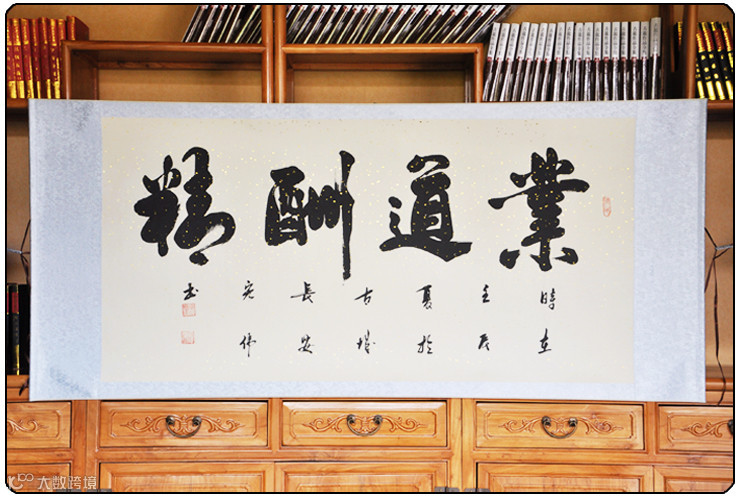 業道酬精
時在
壬辰
夏於
古城
長安
宏偉
书
大数跨境